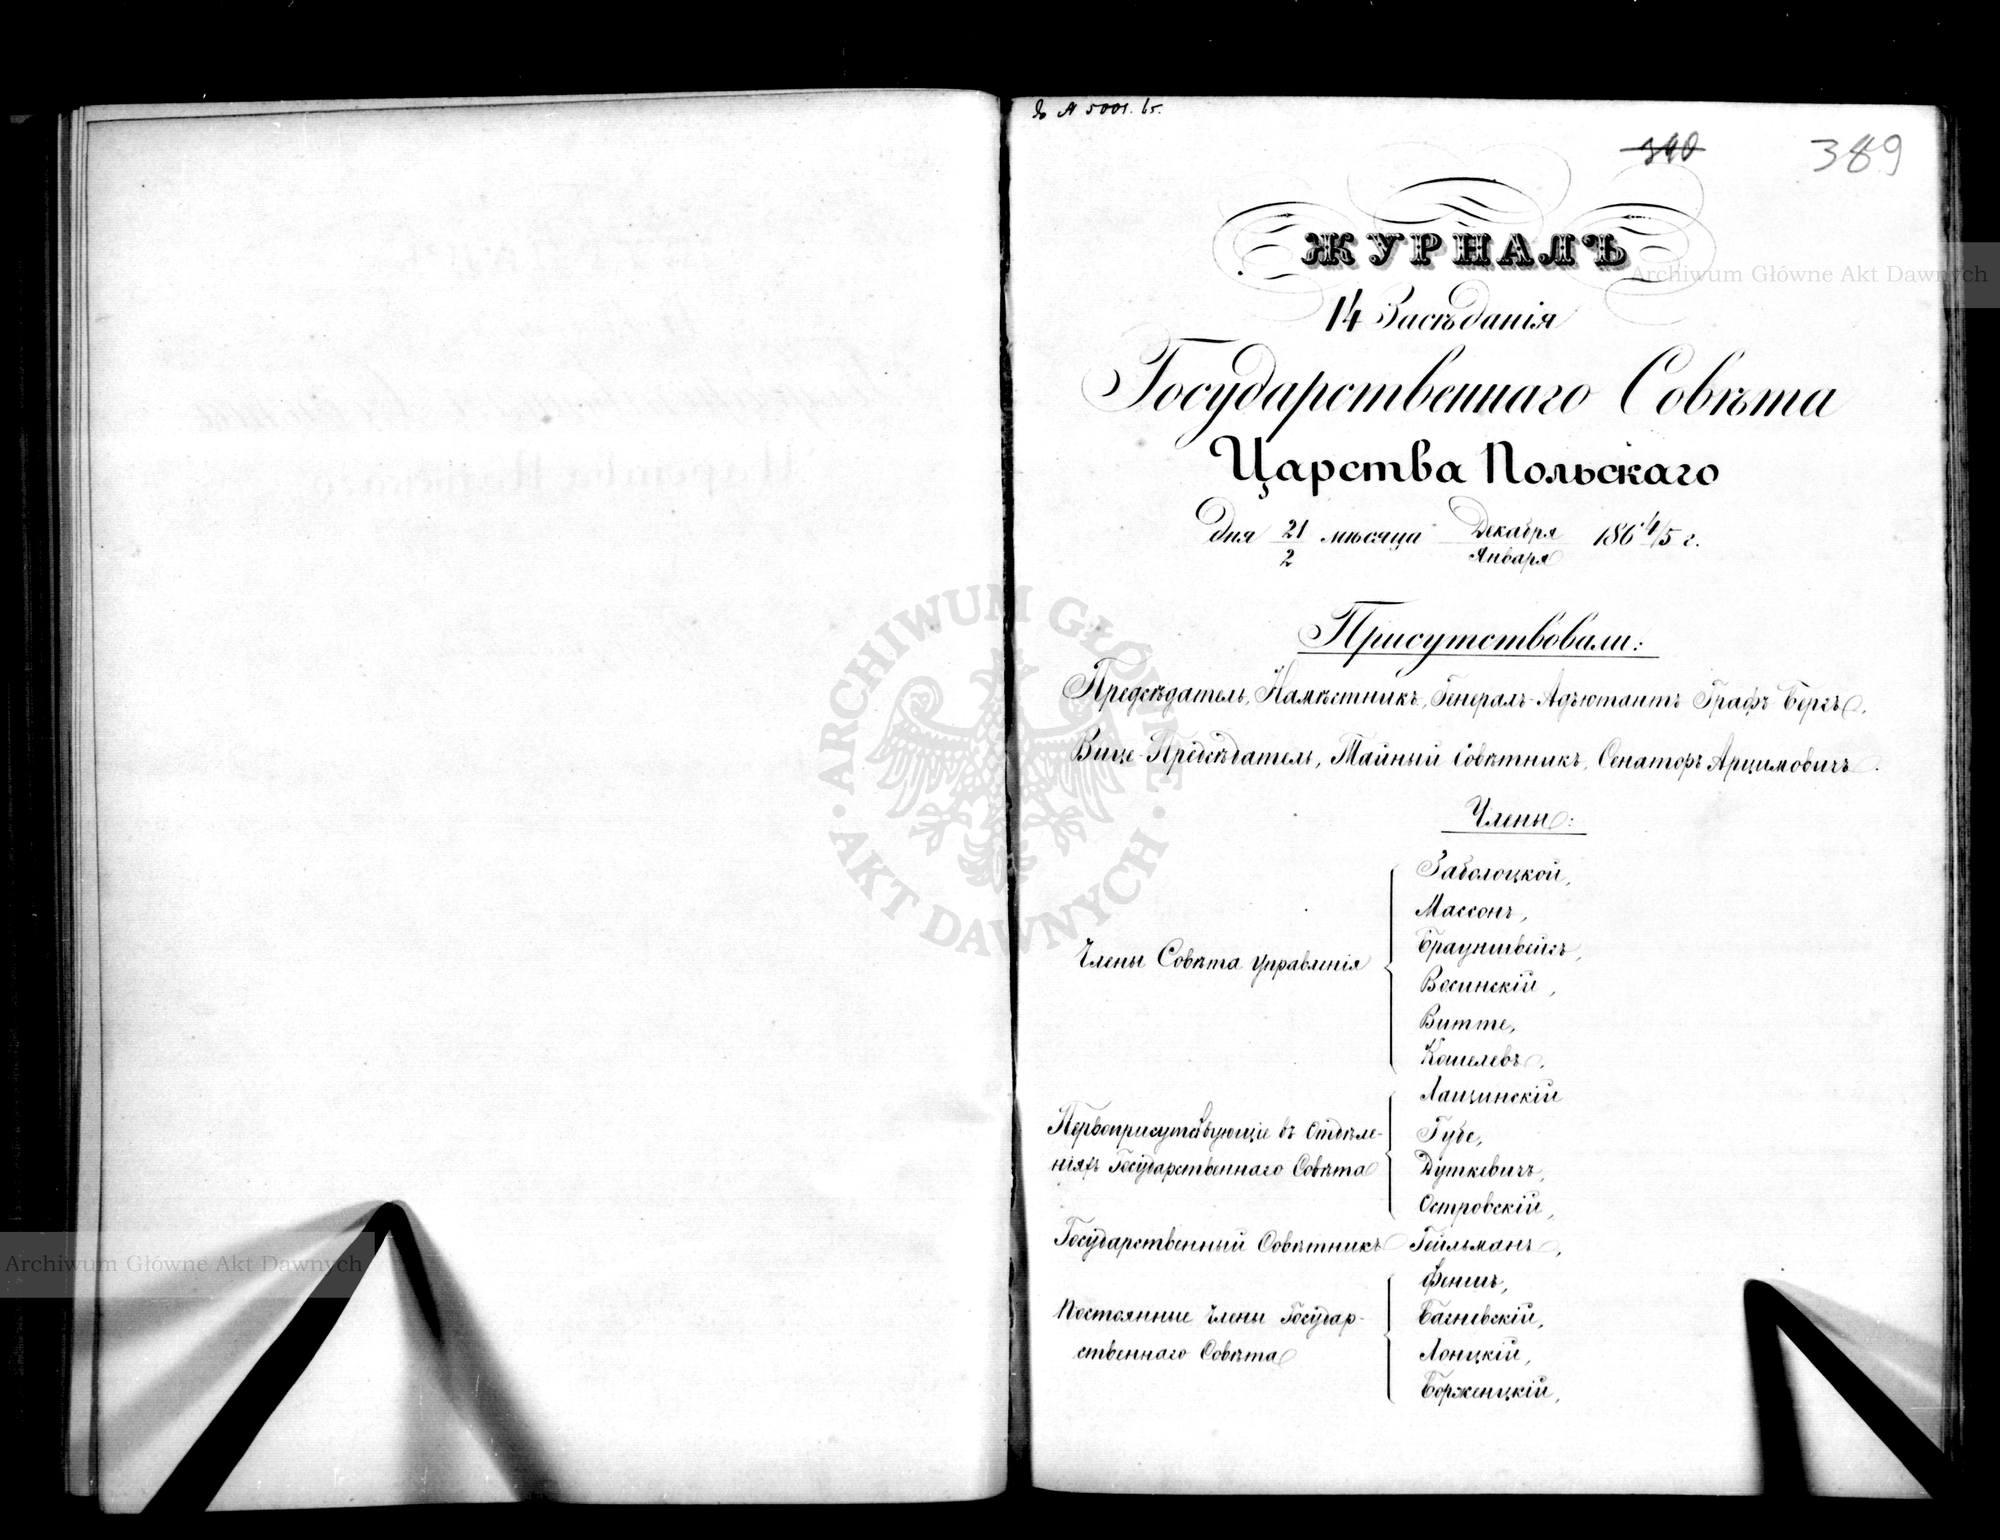 A 5001. 65.
340
389
ЖУРНАЛЪ
14 Засѣданія
Государственнаго Совѣта
Царства Польскаго
дня 21/2 мѣсяца Декабря/Января 186 4/5 г.
Присутствовали:
Предсѣдатель, Намѣстникъ, Генералъ-Адъютантъ Графъ Бергъ.
Вице-Предсѣдатель, Тайный Совѣтникъ, Сенаторъ Арцимовичъ.
Члены:
Заболоцкой,
Массонъ,
Брауншвейгъ,
Члены Совѣта управленія
Восинскій,
Витте,
Кошелевъ,
Лащинскій
Первоприсутствующіе въ Отдѣле-
Губе,
ніяхъ Государственнаго Совѣта
Дуткевичъ,
Островскій,
Государственный Совѣтникъ Гейльманъ,
Феншъ,
Постоянные Члены Государ-
Багневскій,
ственнаго Совѣта
Лонцкій,
Борженцкій,
Archiwum Główne Akt Dawnych
Archiwum Główne Akt Dawnych
ARCHIWUM GŁÓWNE · AKT DAWNYCH ·